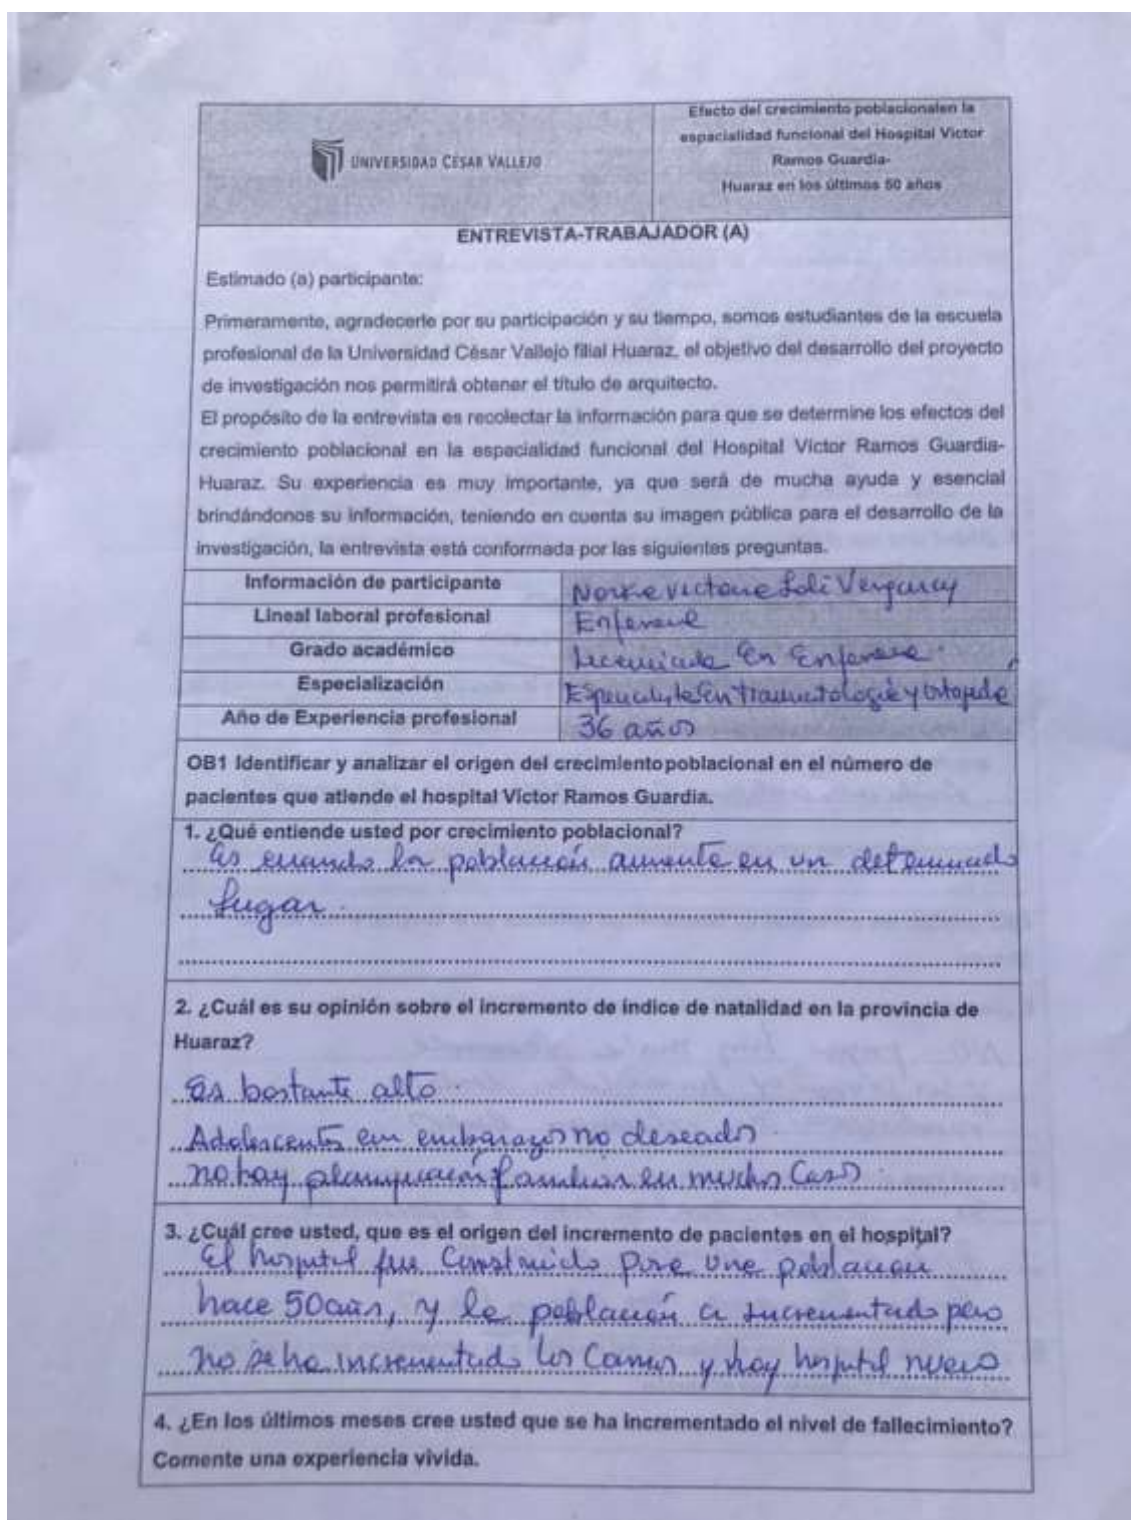 UNIVERSIDAD CÉSAR VALLEJO
Efecto del crecimiento poblacionalen la
espacialidad funcional del Hospital Victor
Ramos Guardia-
Huaraz en los últimos 50 años
ENTREVISTA-TRABAJADOR (A)
Estimado (a) participante:
Primeramente, agradecerle por su participación y su tiempo, somos estudiantes de la escuela
profesional de la Universidad César Vallejo filial Huaraz, el objetivo del desarrollo del proyecto
de investigación nos permitirá obtener el título de arquitecto.
El propósito de la entrevista es recolectar la información para que se determine los efectos del
crecimiento poblacional en la especialidad funcional del Hospital Víctor Ramos Guardia-
Huaraz. Su experiencia es muy importante, ya que será de mucha ayuda y esencial
brindándonos su información, teniendo en cuenta su imagen pública para el desarrollo de la
investigación, la entrevista está conformada por las siguientes preguntas.
Información de participante
Victoria Loli
Lineal laboral profesional
Enfermera
Grado académico
Licenciada En Enfermera.
Especialización
Especialista En traumatología y Ortopedia
Año de Experiencia profesional
36 años
OB1 Identificar y analizar el origen del crecimiento poblacional en el número de
pacientes que atiende el hospital Víctor Ramos Guardia.
1. ¿Qué entiende usted por crecimiento poblacional?
Es cuando la población aumenta en un determinado
lugar.
2. ¿Cuál es su opinión sobre el incremento de índice de natalidad en la provincia de
Huaraz?
Es bastante alto.
Adolescentes con embarazos no deseados.
no hay planificación familiar en muchos casos.
3. ¿Cuál cree usted, que es el origen del incremento de pacientes en el hospital?
El hospital fue construido para una población
hace 50 años, y la población a incrementado pero
no se ha incrementado las camas y hay hospital nuevo
4. ¿En los últimos meses cree usted que se ha incrementado el nivel de fallecimiento?
Comente una experiencia vivida.